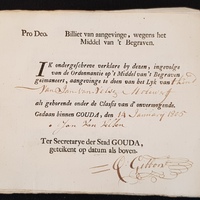 Pro Deo. Billiet van aangevinge, wegens het
Middel van 't Begraven.
IK ondergeschreve verklare by dezen, ingevolge
van de Ordonnantie op 't Middel van 't Begraven
geëmaneert, aangevinge te doen van het Lyk van 't Kind
van Jan van
als gehorende onder de Classis van d'onvermogende.
Gedaan binnen GOUDA, den 14 January 1805
Jan van
Ter Secretarye der Stad GOUDA,
geteikent op datum als boven.